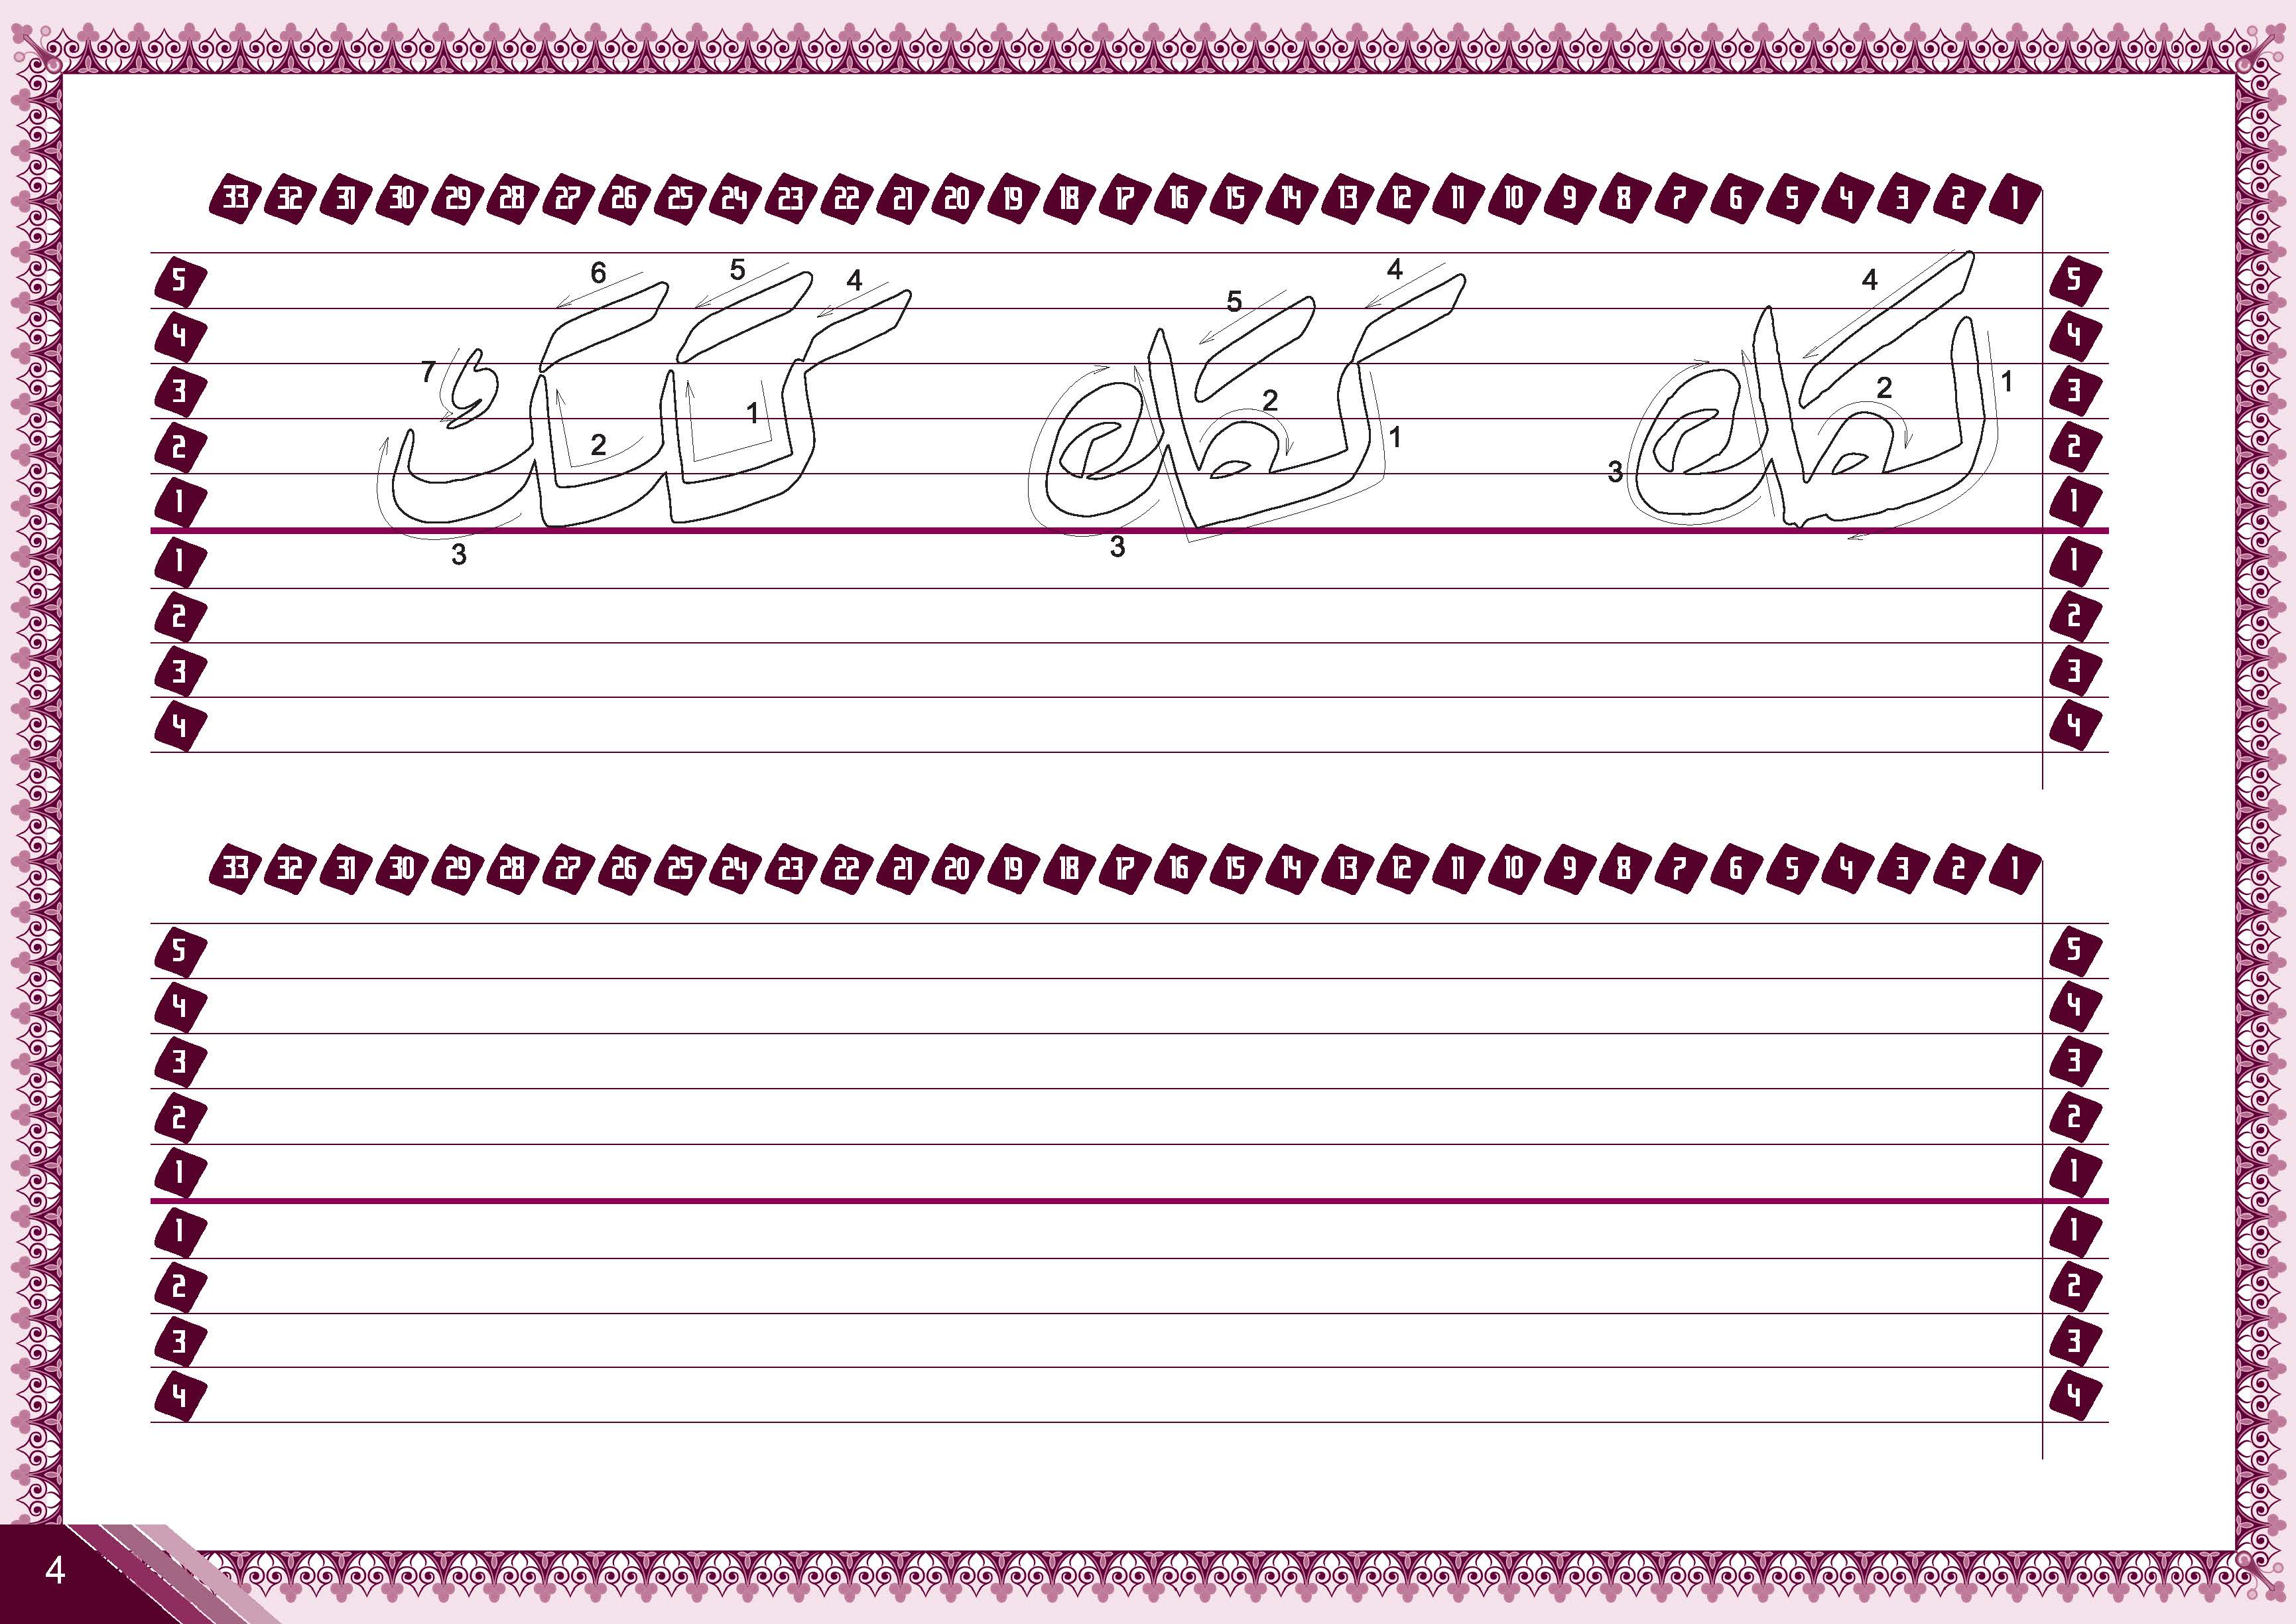 33 32 31 30 29 28 27 26 25 24 23 22 21 20 19 18 17 16 15 14 13 12 11 10 9 8 7 6 5 4 3 2 1
5 6 5 4 5 4 4 5
4 4
3 7 1 2 2 1 3
2 2 1 3 2
ككك
1 1
1 3 3 1
2 2
3 3
4 4
33 32 31 30 29 28 27 26 25 24 23 22 21 20 19 18 17 16 15 14 13 12 11 10 9 8 7 6 5 4 3 2 1
5 5
4 4
3 3
2 2
1 1
1 1
2 2
3 3
4 4
4